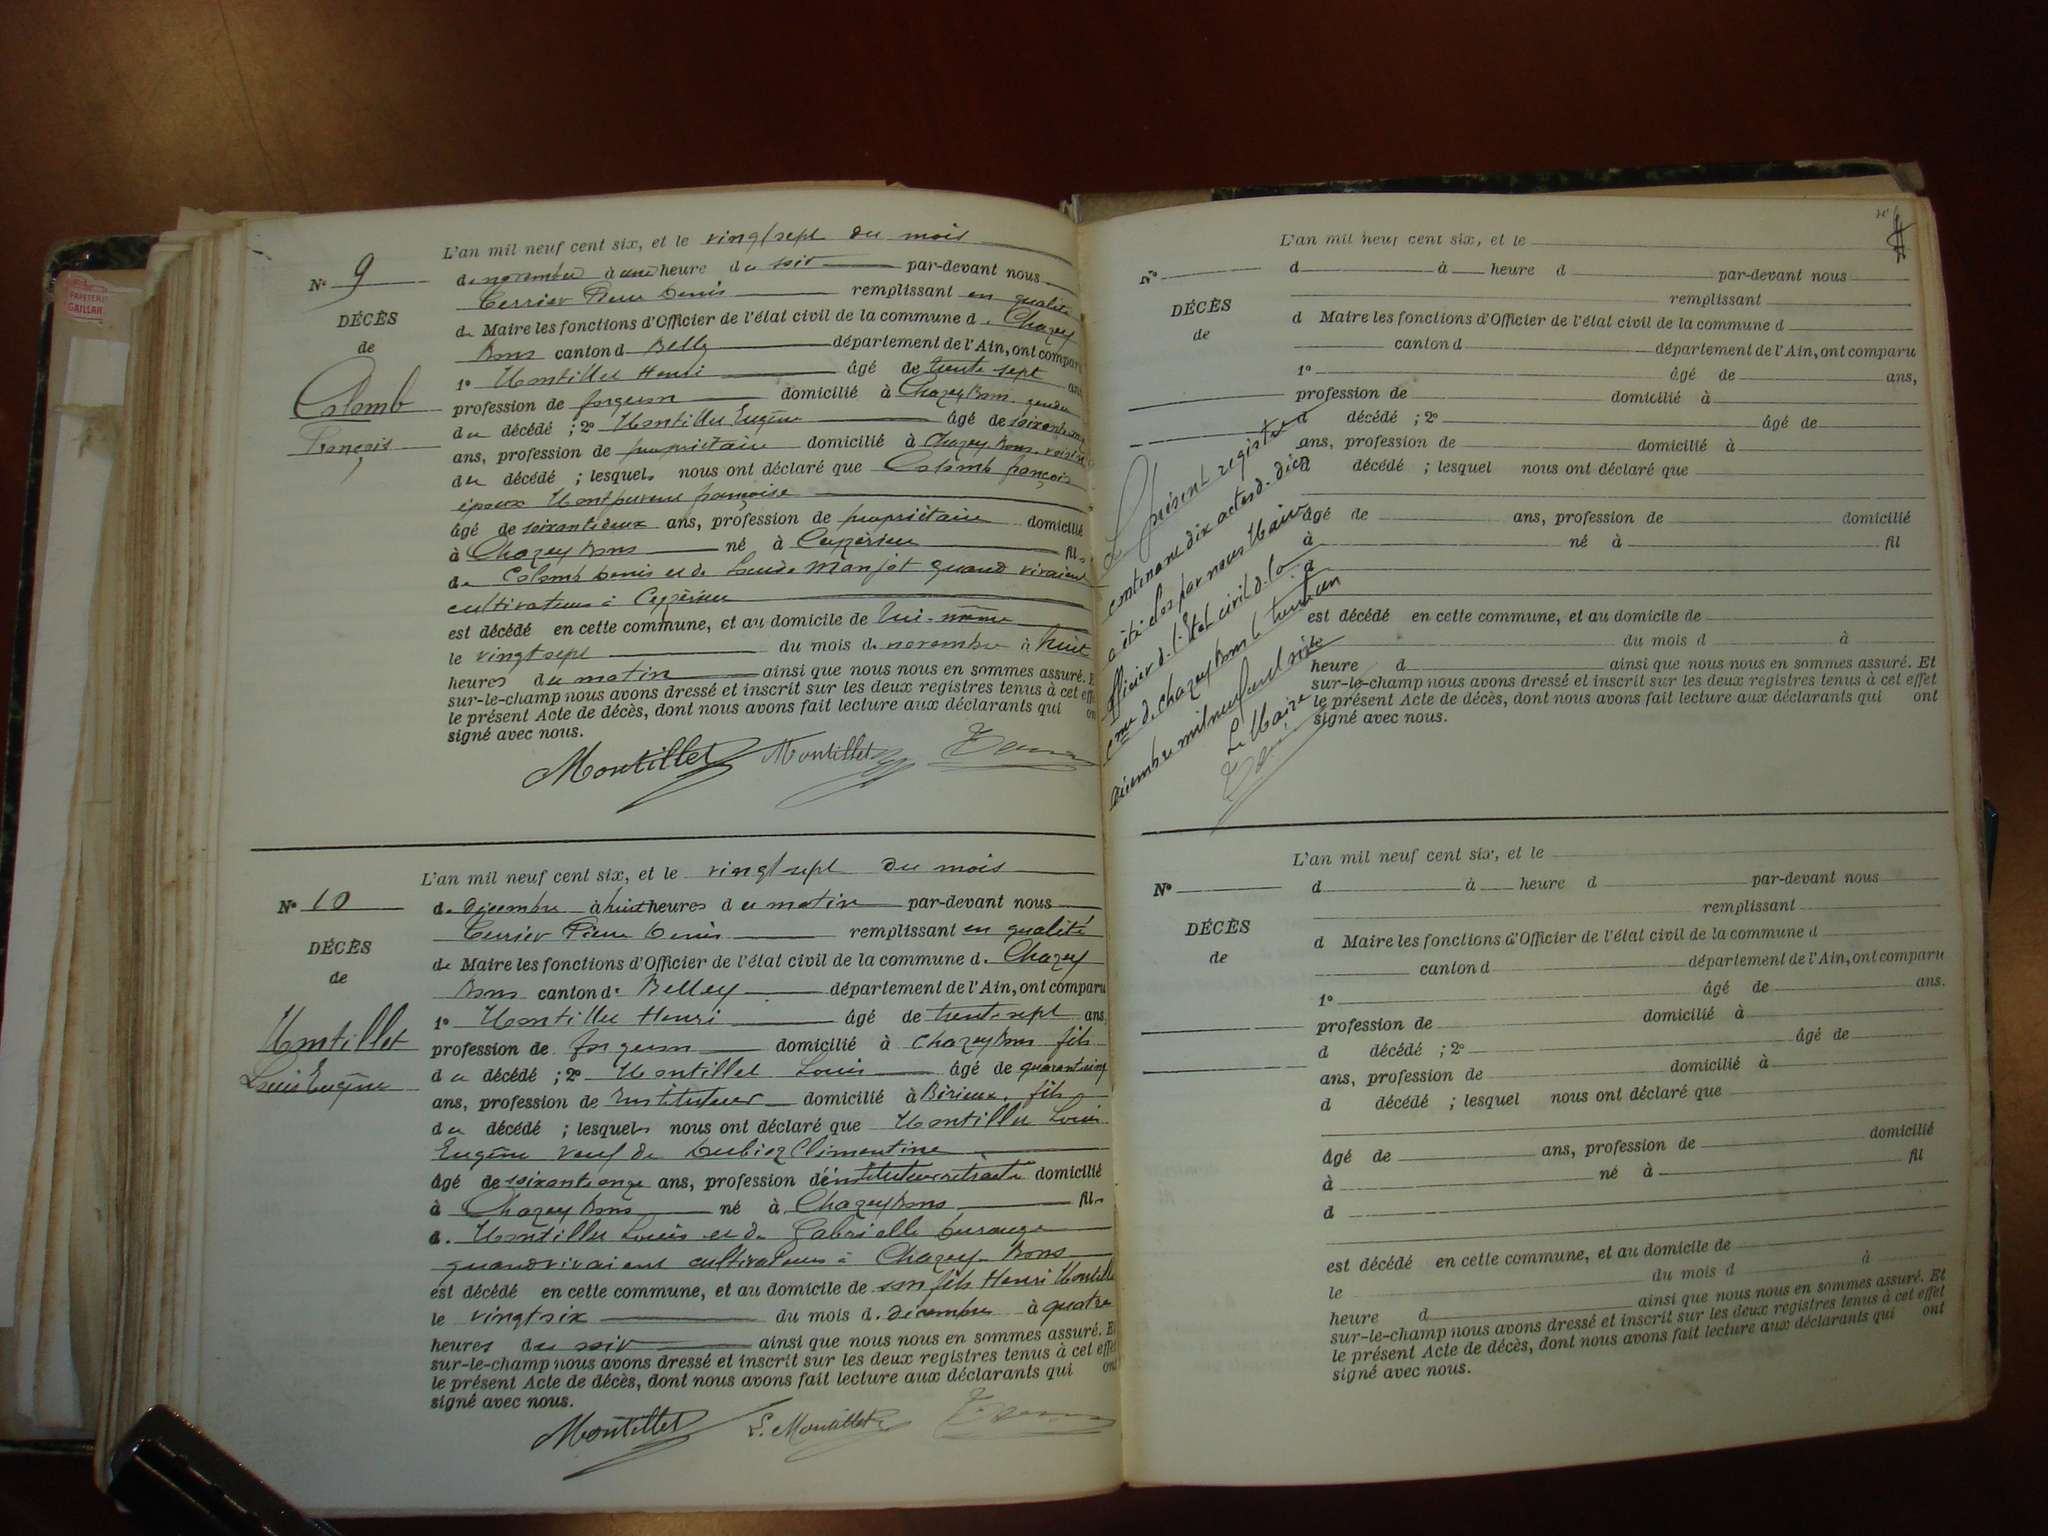 PAPETERIE
GAILLAR
L'an mil neuf cent six, et le vingt sept du mois
N° 9 de novembre à une heure du soir par-devant nous
Pierre Denis remplissant en qualité
DÉCÈS
de Maire les fonctions d'Officier de l'état civil de la commune de Chazey
de
Bons canton d Belley département de l'Ain, ont comparu
1° Montillet Henri âgé de trente sept ans
Colomb
profession de forgeron domicilié à Chazey Bons gendre
du décédé ; 2° Montillet Eugène âgé de soixante onze
François
ans, profession de propriétaire domicilié à Chazey Bons voisin
du décédé ; lesquels nous ont déclaré que Colomb françois
époux françoise
âgé de soixante deux ans, profession de propriétaire domicilié
à Chazey Bons né à Ceyzérieu fils
de Colomb Denis et de Manjot quand vivaient
cultivateurs à Ceyzérieu
est décédé en cette commune, et au domicile de lui-même
le vingt sept du mois de novembre à huit
heures du matin ainsi que nous nous en sommes assuré. Et
sur-le-champ nous avons dressé et inscrit sur les deux registres tenus à cet effet
le présent Acte de décès, dont nous avons fait lecture aux déclarants qui ont
signé avec nous.
Montillet Montillet
L'an mil neuf cent six, et le vingt sept du mois
N° 10 de Décembre à huit heures du matin par-devant nous
Pierre Denis remplissant en qualité
DÉCÈS
de Maire les fonctions d'Officier de l'état civil de la commune de Chazey
de
Bons canton de Belley département de l'Ain, ont comparu
1° Montillet Henri âgé de trente sept ans
Montillet
profession de forgeron domicilié à Chazey Bons fils
du décédé ; 2° Montillet Louis âgé de quarante cinq
Louis Eugène
ans, profession de Instituteur domicilié à Birieux, fils
du décédé ; lesquels nous ont déclaré que Montillet Louis
Eugène veuf de Clémentine
âgé de soixante onze ans, profession d'instituteur retraité domicilié
à Chazey Bons né à Chazey Bons fils
de Montillet Louis et de Gabrielle
quand vivaient cultivateurs à Chazey Bons
est décédé en cette commune, et au domicile de son fils Henri Montillet
le vingt six du mois de décembre à quatre
heures du soir ainsi que nous nous en sommes assuré. Et
sur-le-champ nous avons dressé et inscrit sur les deux registres tenus à cet effet
le présent Acte de décès, dont nous avons fait lecture aux déclarants qui ont
signé avec nous.
Montillet L. Montillet
L'an mil neuf cent six, et le
N° d à heure d par-devant nous
remplissant
DÉCÈS
d Maire les fonctions d'Officier de l'état civil de la commune d
de
canton d département de l'Ain, ont comparu
1° âgé de ans,
profession de domicilié à
d décédé ; 2° âgé de
ans, profession de domicilié à
d décédé ; lesquel nous ont déclaré que
âgé de ans, profession de domicilié
à né à fil
d
est décédé en cette commune, et au domicile de
du mois d à
heure d ainsi que nous nous en sommes assuré. Et
sur-le-champ nous avons dressé et inscrit sur les deux registres tenus à cet effet
le présent Acte de décès, dont nous avons fait lecture aux déclarants qui ont
signé avec nous.
Le présent registre
contenant dix actes de décès
a été clos par nous Maire
officier de l'Etat civil de la
cne de Chazey Bons le trente un
décembre mil neuf cent six
Le Maire
L'an mil neuf cent six, et le
N° d à heure d par-devant nous
remplissant
DÉCÈS
d Maire les fonctions d'Officier de l'état civil de la commune d
de
canton d département de l'Ain, ont comparu
1° âgé de ans.
profession de domicilié à
d décédé ; 2° âgé de
ans, profession de domicilié à
d décédé ; lesquel nous ont déclaré que
âgé de ans, profession de domicilié
à né à fil
d
est décédé en cette commune, et au domicile de
le du mois d à
heure d ainsi que nous nous en sommes assuré. Et
sur-le-champ nous avons dressé et inscrit sur les deux registres tenus à cet effet
le présent Acte de décès, dont nous avons fait lecture aux déclarants qui ont
signé avec nous.